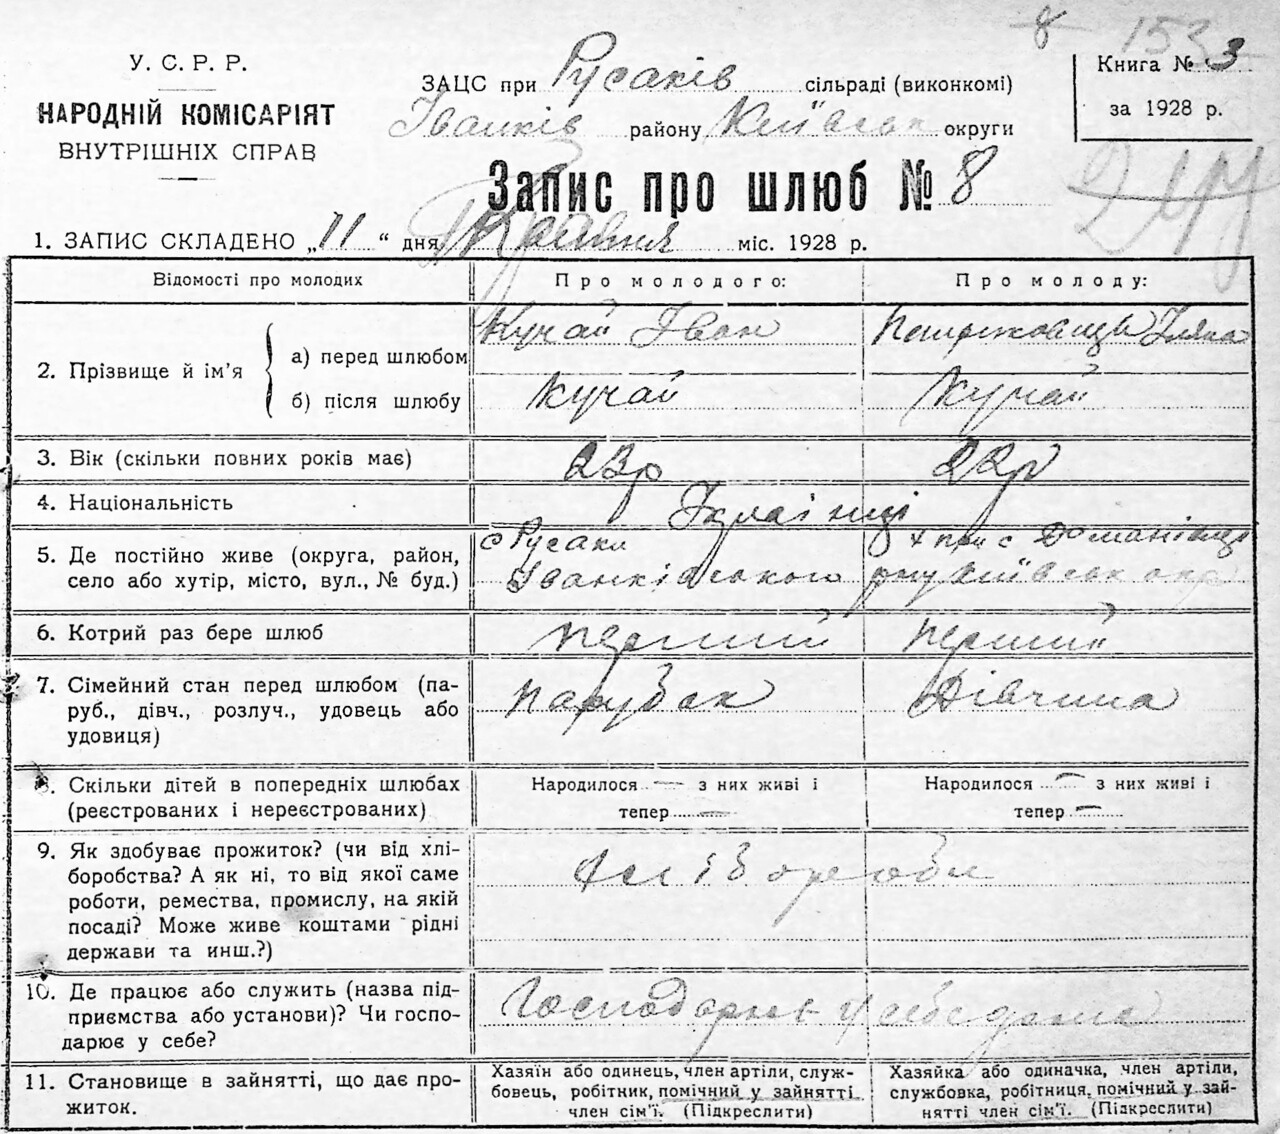 8 153
У. С. Р. Р.
НАРОДНІЙ КОМІСАРІЯТ
ВНУТРІШНІХ СПРАВ
ЗАЦС при Русаків сільраді (виконкомі)
Іванків району Київськ округи
Книга № 3
за 1928 р.
Запис про шлюб № 8
1. ЗАПИС СКЛАДЕНО „11“ дня Травня міс. 1928 р.
Відомості про молодих Про молодого: Про молоду:
2. Прізвище й ім’я
а) перед шлюбом Кучай Іван
б) після шлюбу Кучай Кучай
3. Вік (скільки повних років має) 23р 22р
4. Національність Українці
5. Де постійно живе (округа, район, с Русаки с Доманівці
село або хутір, місто, вул., № буд.) Іванківського рну Київськ окр
6. Котрий раз бере шлюб перший перший
7. Сімейний стан перед шлюбом (па-
руб., дівч., розлуч., удовець або парубок Дівчина
удовиця)
8. Скільки дітей в попередніх шлюбах Народилося — з них живі і Народилося — з них живі і
(реєстрованих і нереєстрованих) тепер — тепер —
9. Як здобуває прожиток? (чи від хлі-
боробства? А як ні, то від якої саме
роботи, ремества, промислу, на якій
посаді? Може живе коштами рідні
держави та инш.?)
10. Де працює або служить (назва під-
приємства або установи)? Чи госпо-
дарює у себе?
11. Становище в зайнятті, що дає про-
житок.
Хазяїн або одинець, член артіли, служ-
бовець, робітник, помічний у зайнятті
член сім’ї. (Підкреслити)
Хазяйка або одиначка, член артіли,
службовка, робітниця, помічний у зай-
нятті член сім’ї. (Підкреслити)